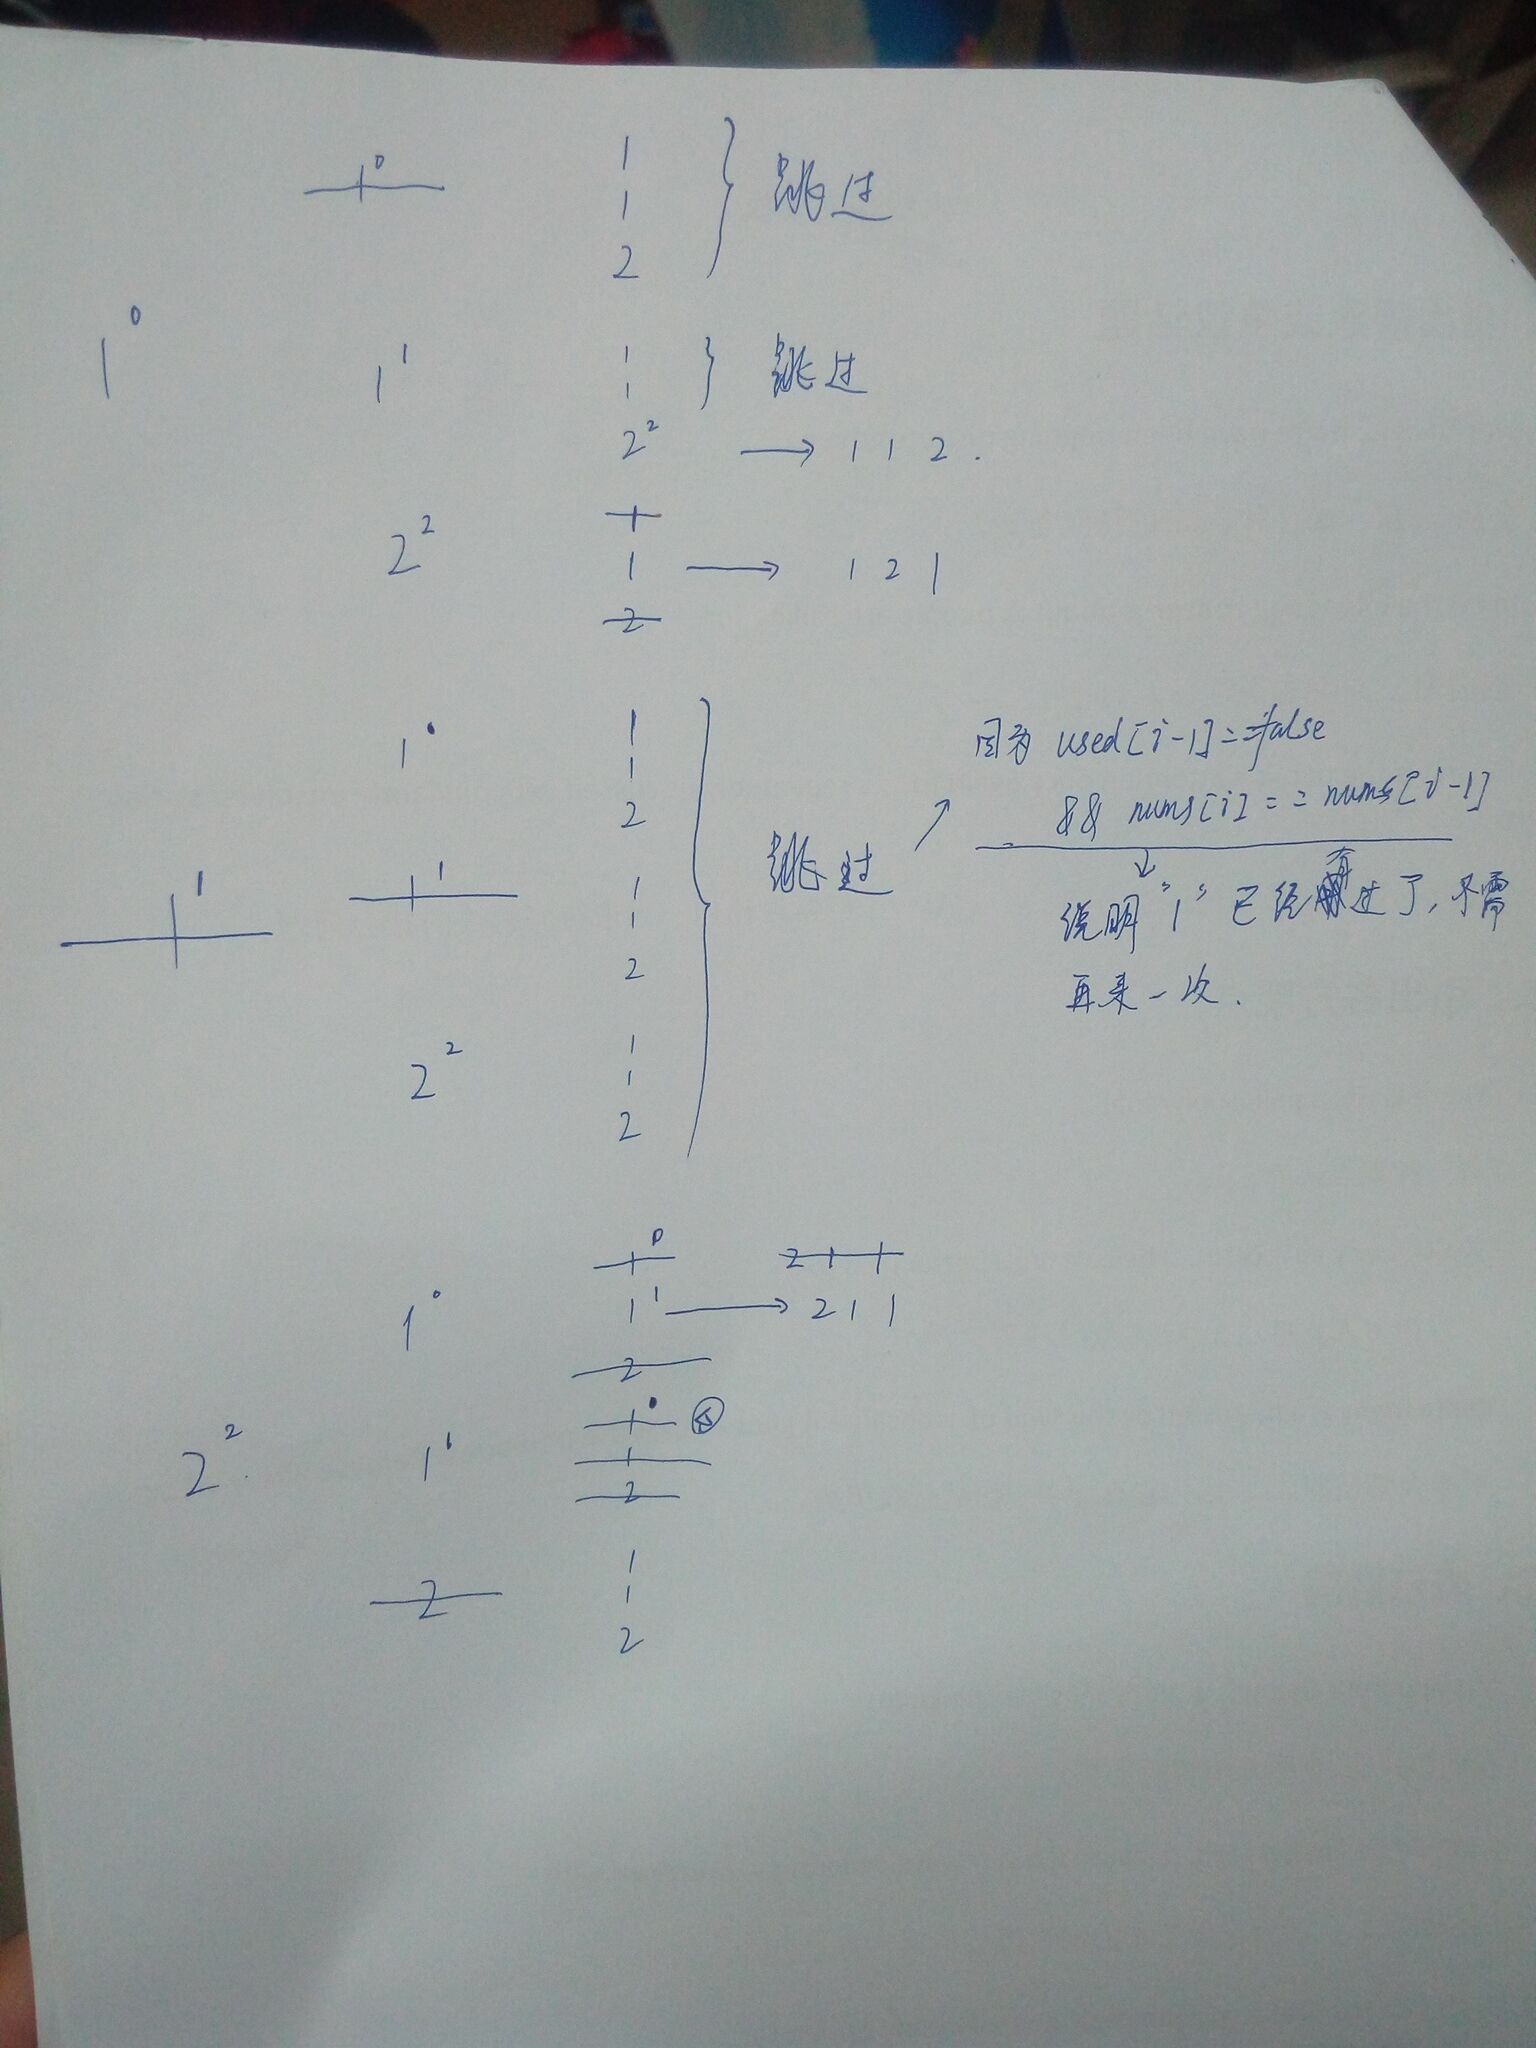 1⁰
1⁰
1
1
2
跳过
1¹
1
1
跳过
2² → 1 1 2 .
2²
1
1 → 1 2 1
2
1¹
1⁰
1
1
2
1¹
1
1
2
2²
1
1
2
跳过
因为 used[i-1]==false
&& nums[i]==nums[i-1]
说明"1"已经有过了,不需
再来一次.
2²
1⁰
1⁰ 2 1 1
1¹ → 2 1 1
2
1¹
1⁰
1
2
2
1
1
2